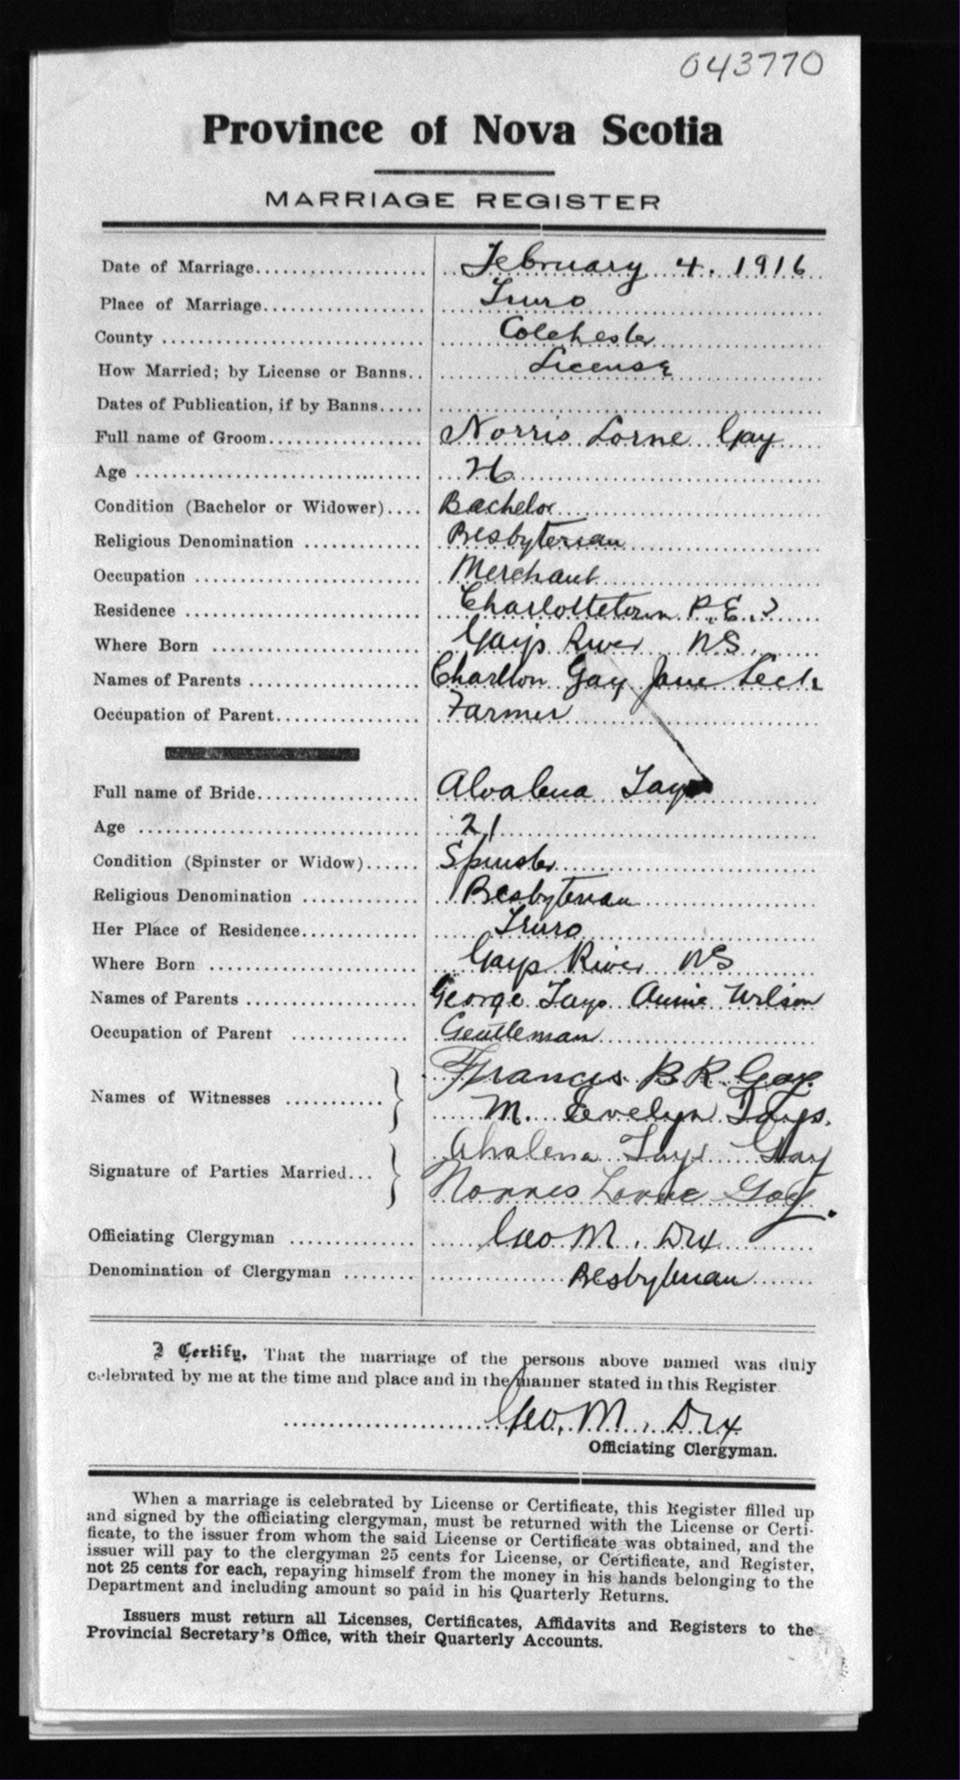 043770
Province of Nova Scotia
MARRIAGE REGISTER
Date of Marriage.................... February 4. 1916
Place of Marriage................... Truro
County ............................ Colchester
How Married; by License or Banns.. License
Dates of Publication, if by Banns.....
Full name of Groom.................. Norris Lorne Gay
Age ............................... 26
Condition (Bachelor or Widower).... Bachelor
Religious Denomination ............. Presbyterian
Occupation ......................... Merchant
Residence .......................... Charlottetown P.E.I
Where Born ........................ Gay's River NS
Names of Parents .................. Charlton Gay Jane Leck
Occupation of Parent................ Farmer
Full name of Bride.................. Alvalena Tays
Age ............................... 21
Condition (Spinster or Widow)...... Spinster
Religious Denomination ............. Presbyterian
Her Place of Residence.............. Truro
Where Born ........................ Gays River NS
Names of Parents .................. George Tays Annie Wilson
Occupation of Parent ............. Gentleman
Names of Witnesses ........... } Francis B R Gay.
M. Evelyn Tays.
Signature of Parties Married... } Alvalena Tays Gay
Norris Lorne Gay.
Officiating Clergyman .............. Geo M. Dix
Denomination of Clergyman ........ Presbyterian
I Certify, That the marriage of the persons above named was duly
celebrated by me at the time and place and in the manner stated in this Register
Geo. M. Dix
Officiating Clergyman.
When a marriage is celebrated by License or Certificate, this Register filled up
and signed by the officiating clergyman, must be returned with the License or Certi-
ficate, to the issuer from whom the said License or Certificate was obtained, and the
issuer will pay to the clergyman 25 cents for License, or Certificate, and Register,
not 25 cents for each, repaying himself from the money in his hands belonging to the
Department and including amount so paid in his Quarterly Returns.
Issuers must return all Licenses, Certificates, Affidavits and Registers to the
Provincial Secretary's Office, with their Quarterly Accounts.